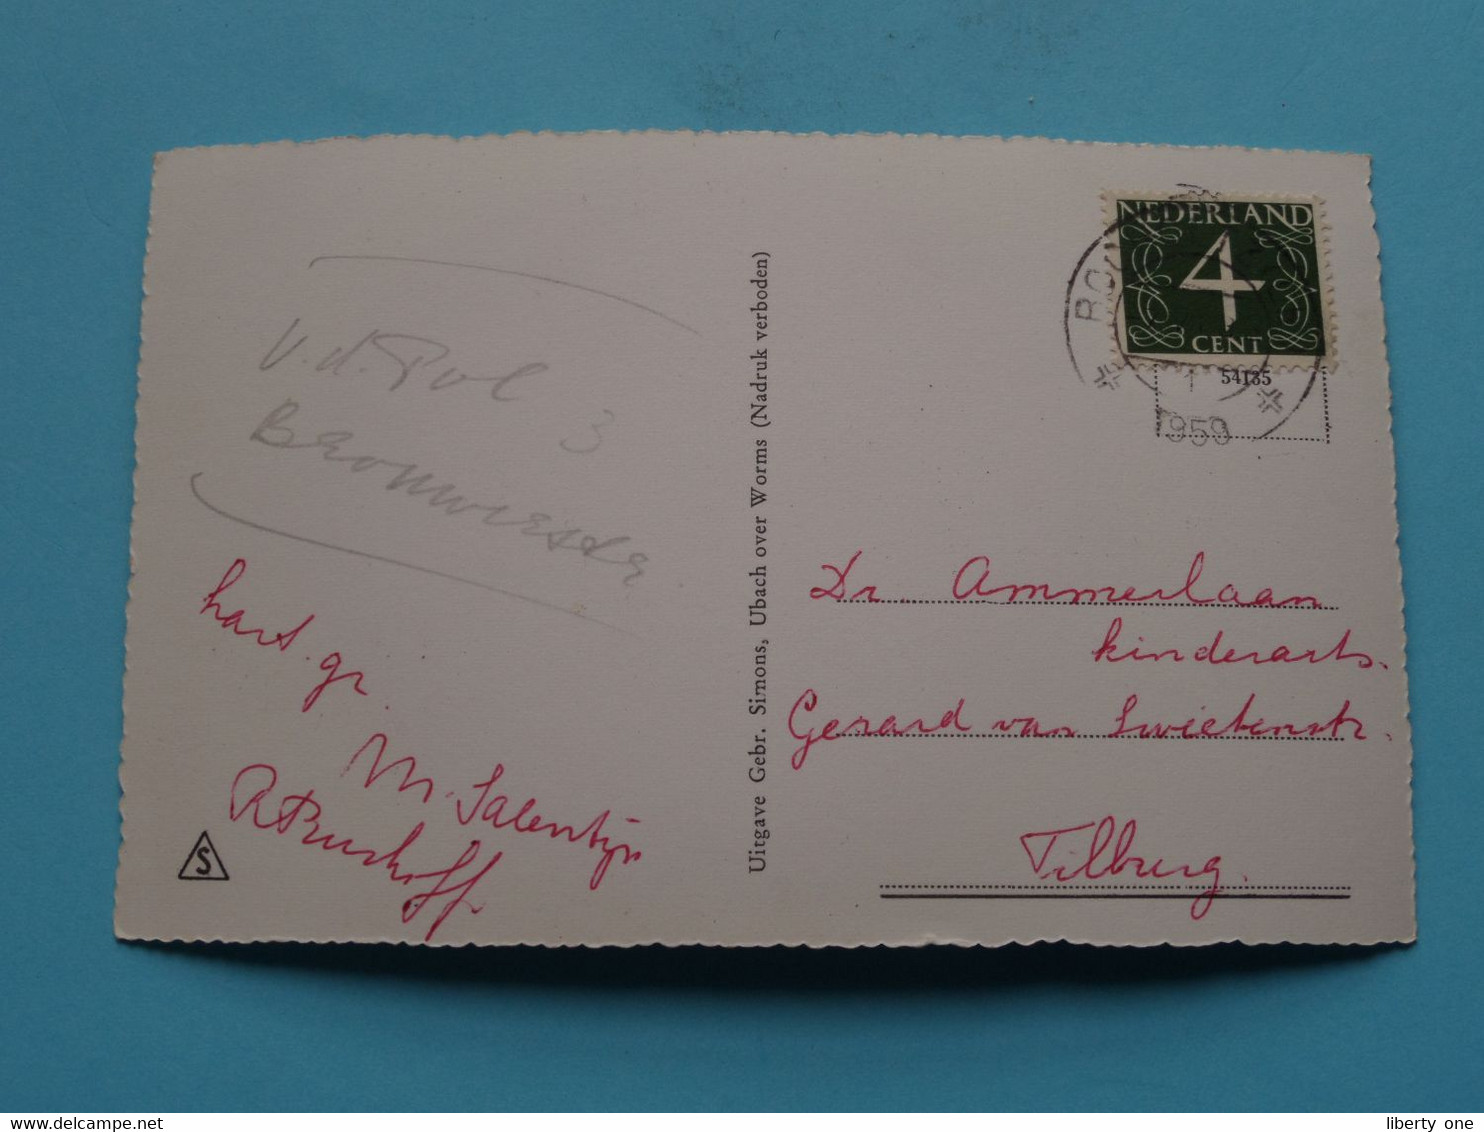 V.d. Pol 3
hart. gr.
M. Salentijn
S
Uitgave Gebr. Simons, Ubach over Worms (Nadruk verboden)
NEDERLAND
4
CENT
54135
1
1959
Dr. Ammerlaan
kinderarts.
Gerard van Swietenstr.
Tilburg.
liberty one